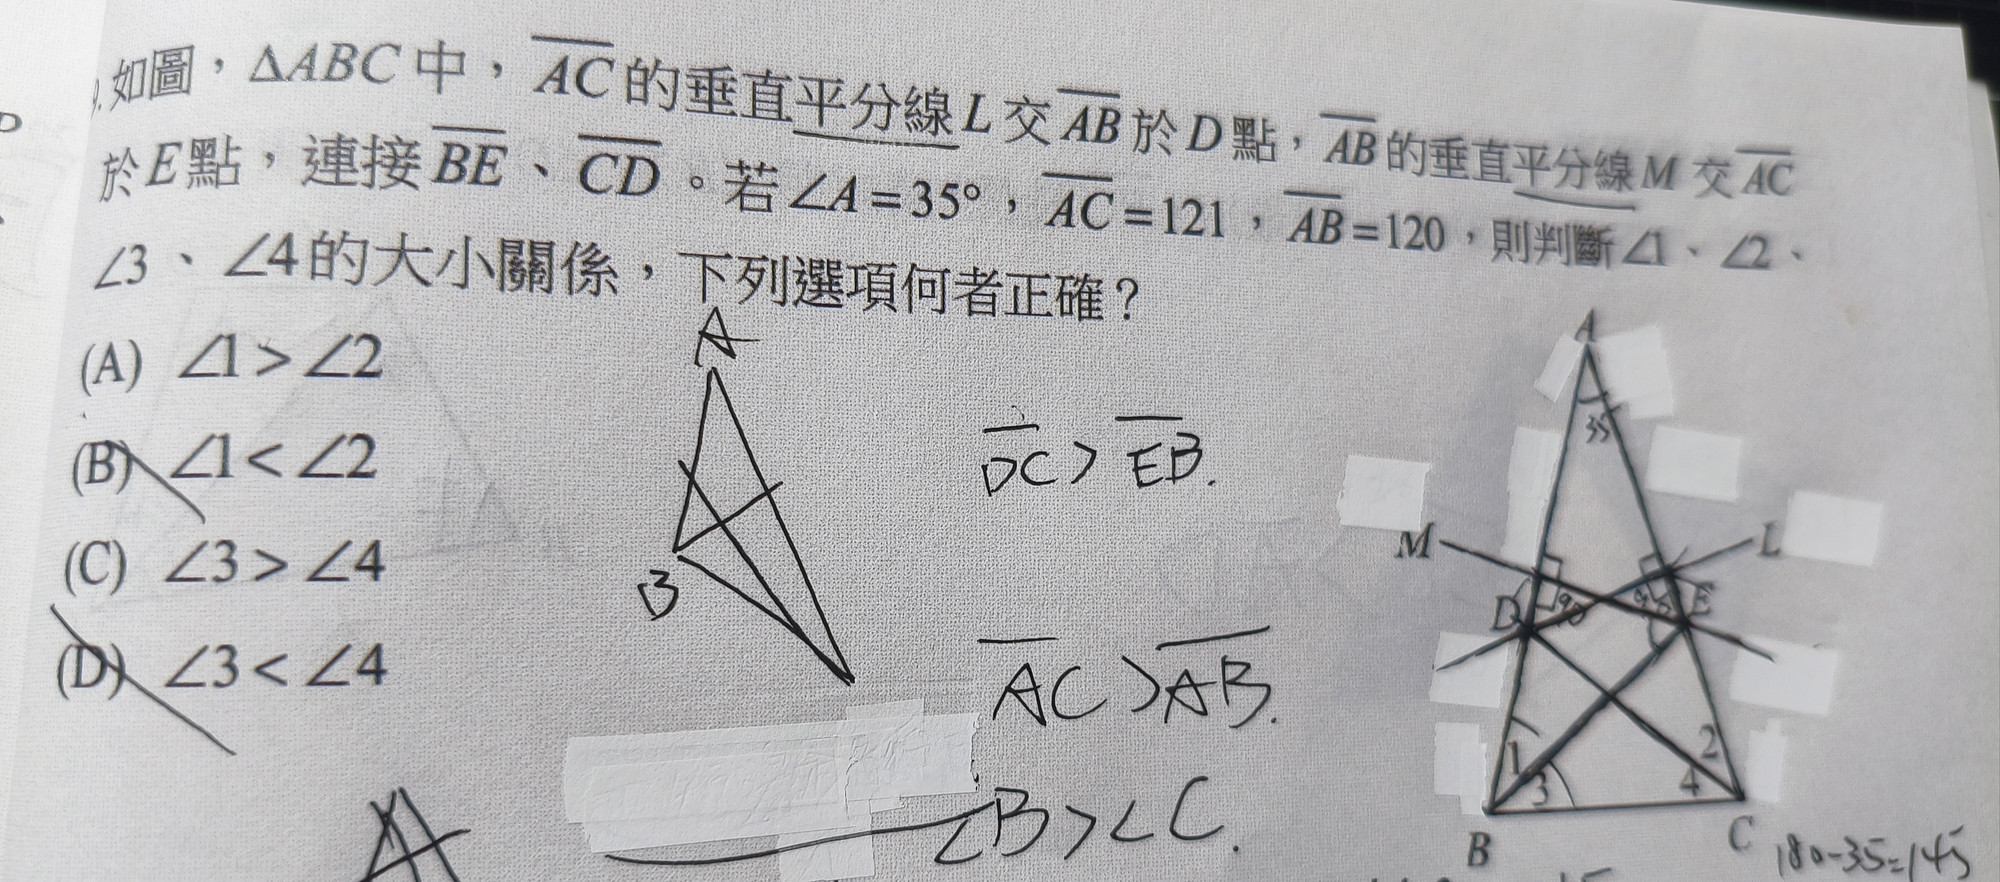 9.如圖，ΔABC中，AC的垂直平分線L交AB於D點，AB的垂直平分線M交AC
於E點，連接BE、CD。若∠A=35°，AC=121，AB=120，則判斷∠1、∠2、
∠3、∠4的大小關係，下列選項何者正確？
(A) ∠1>∠2
(B) ∠1<∠2
(C) ∠3>∠4
(D) ∠3<∠4
A
B
DC>EB.
AC>AB.
∠B>∠C.
A
35
M
L
D
90
E
1
2
3
4
B
C
180-35=145